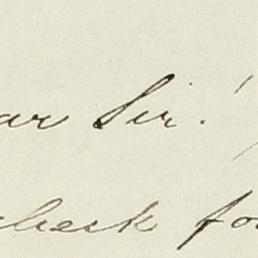 ar Sir!
check fo